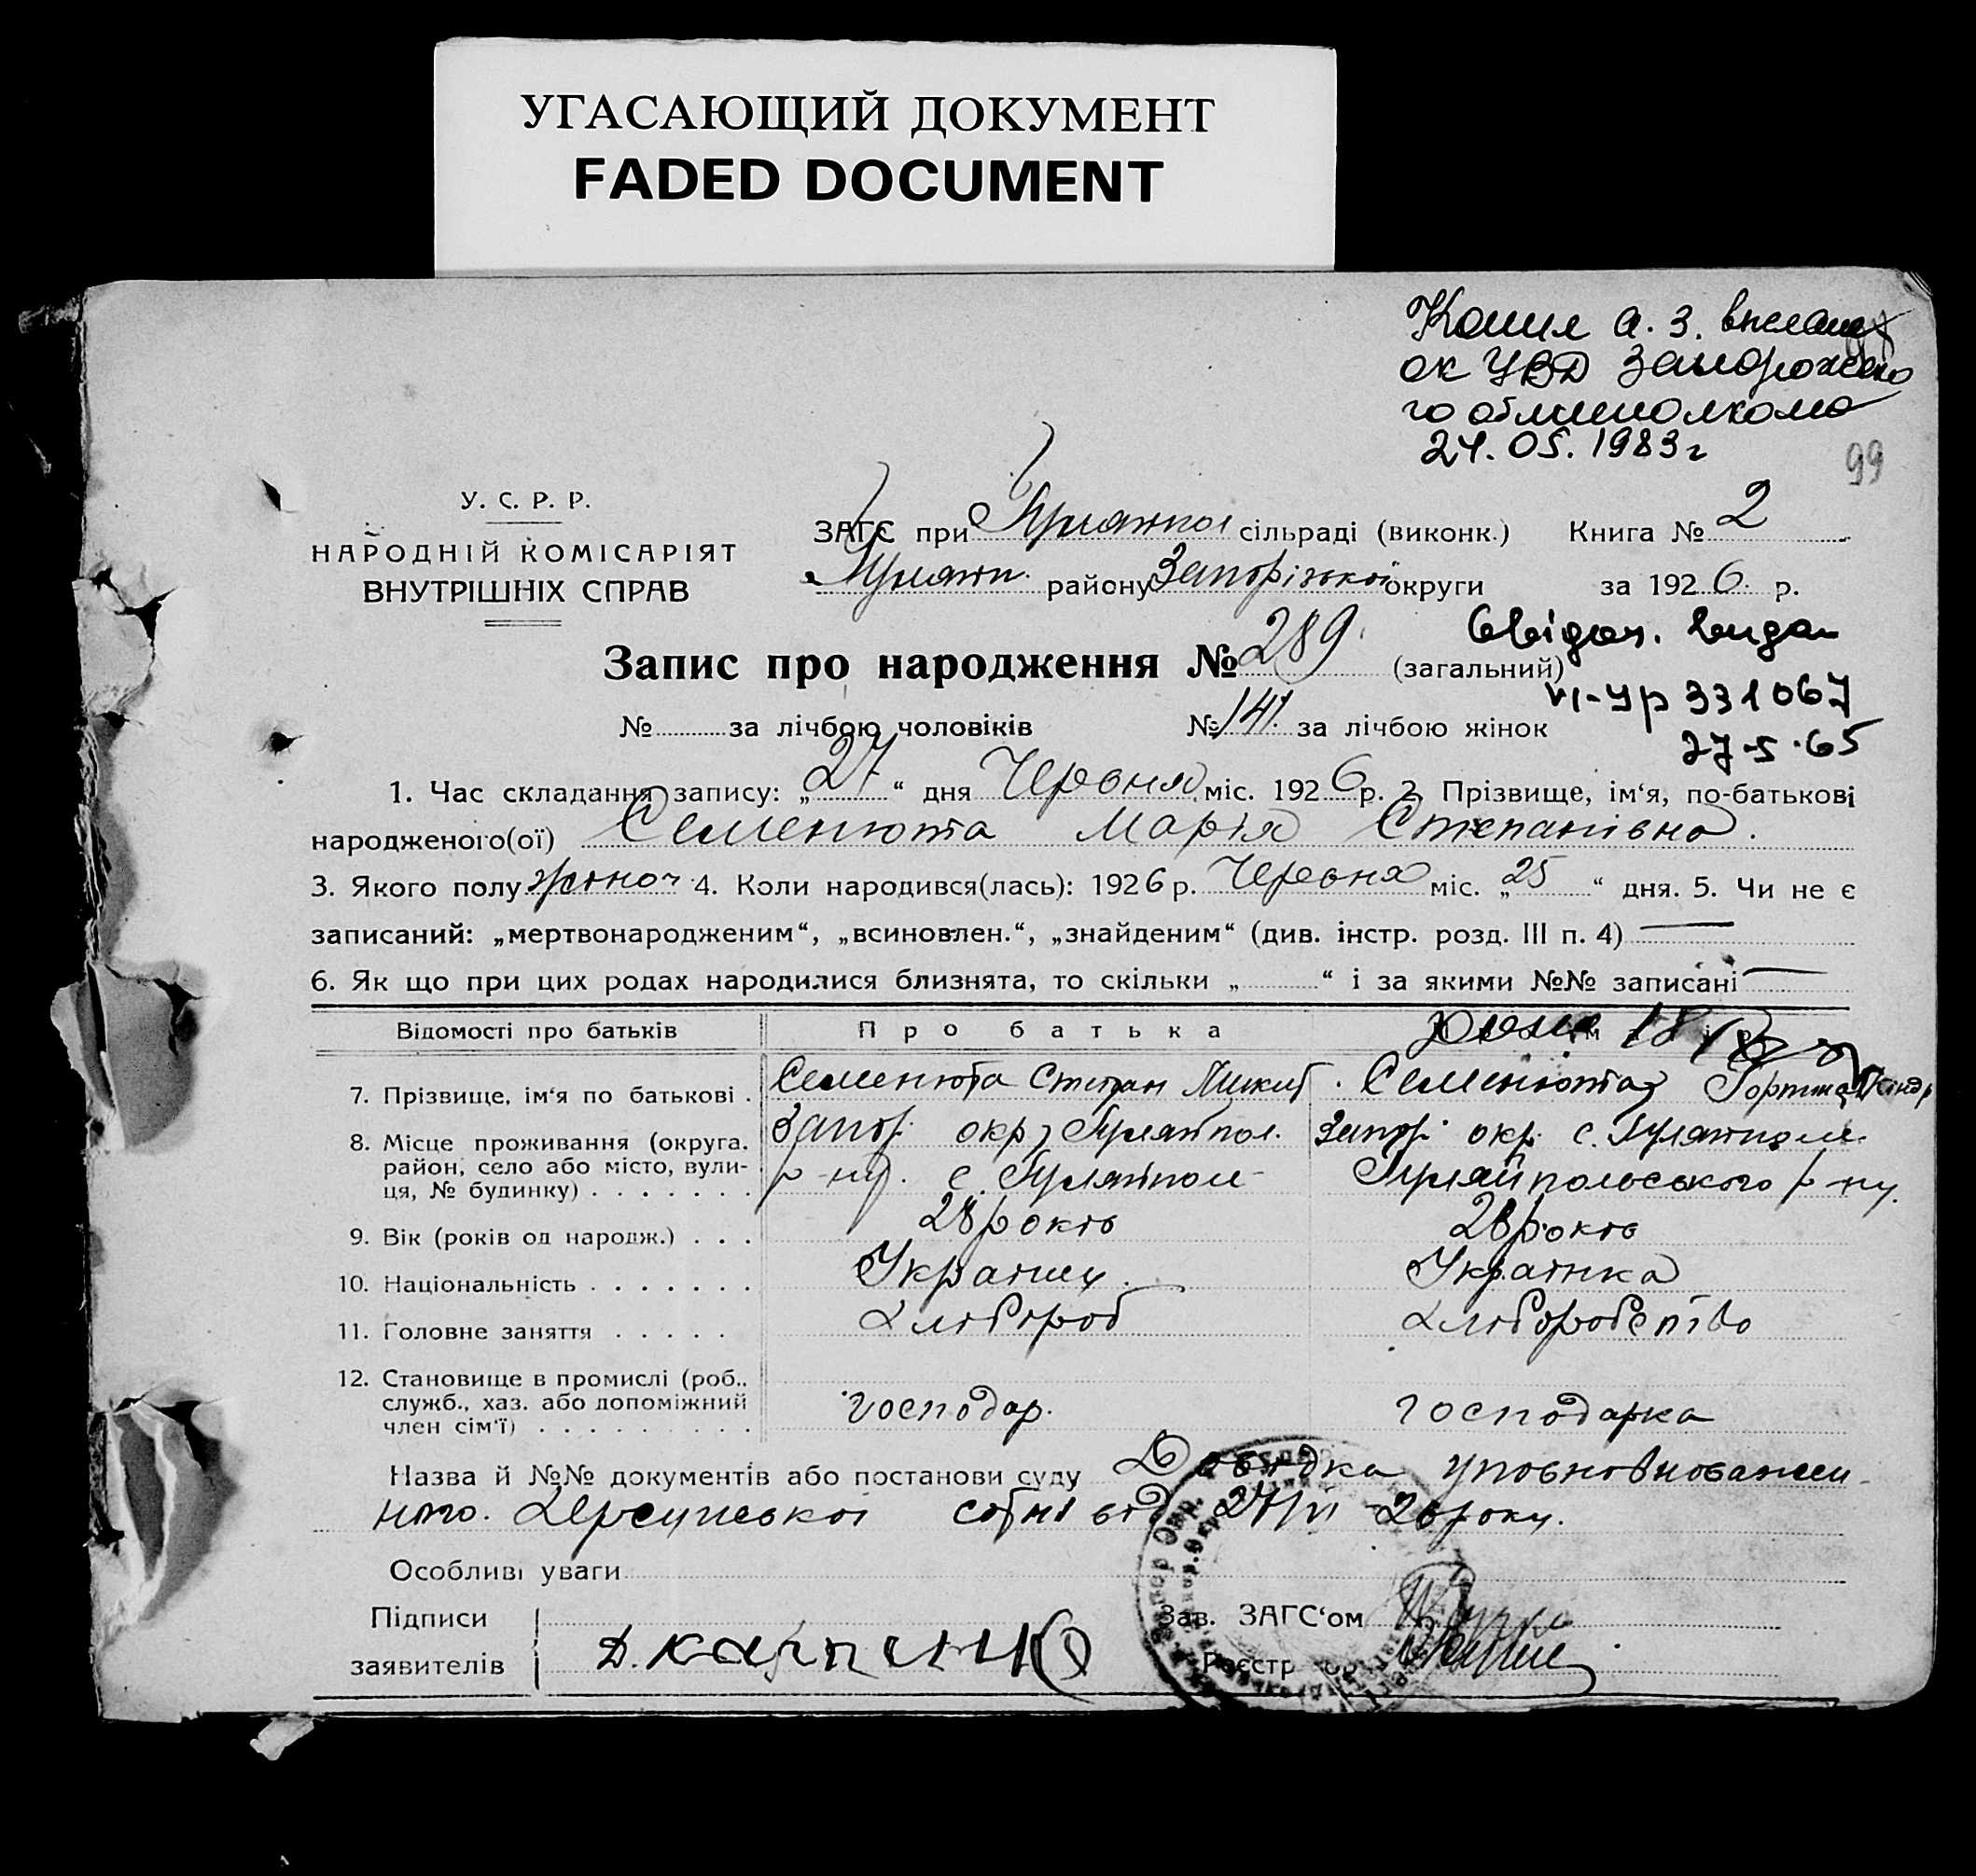 УГАСАЮЩИЙ ДОКУМЕНТ
FADED DOCUMENT
Копия а. з. выслана
ОК УВД Запорожско
го облисполкома
24.05.1983г
99
У. С. Р. Р.
НАРОДНІЙ КОМІСАРІЯТ
ВНУТРІШНІХ СПРАВ
ЗАГС при Гуляйпол сільраді (виконк.) Книга № 2
Гуляйп. району Запорізької округи за 1926. р.
Запис про народження № 289. (загальний)
Свідоц. видан
VI-УР 331067
27-5.65
№ за лічбою чоловіків № 141. за лічбою жінок
1. Час складання запису: „27“ дня Червня міс. 1926 р. 2. Прізвище, ім‘я, по-батькові
народженого(ої) Семенюта Марія Степанівна.
3. Якого полу жіноч. 4. Коли народився(лась): 1926 р. Червня міс. „25“ дня. 5. Чи не є
записаний: „мертвонародженим“, „всиновлен.“, „знайденим“ (див. інстр. розд. III п. 4) —
6. Як що при цих родах народилися близнята, то скільки „ “ і за якими №№ записані —
Відомості про батьків Про батька
7. Прізвище, ім‘я по батькові . Семенюта Степан Микит. Семенюта Кіндр
8. Місце проживання (округа, район, село або місто, вулиця, № будинку) . . . . . . .
Запор. окр, Гуляйпол. Запор. окр. с. Гуляйполе
р-ну. с. Гуляйполе Гуляйпольського р-ну.
9. Вік (років од народж.) . . . 28 років 28 років
10. Національність . . . . . . . Українец. Українка
11. Головне заняття . . . . . Хлібороб Хліборобство
12. Становище в промислі (роб., служб., хаз. або допоміжний член сім‘ї) . . . . . . . . . господар. господарка
Назва й №№ документів або постанови суду Довідка уповновноважен-
ного. сотні від 27/VI-26 року.
Особливі уваги
Підписи Зав. ЗАГС‘ом
заявителів Д. Карпенко Реєстр